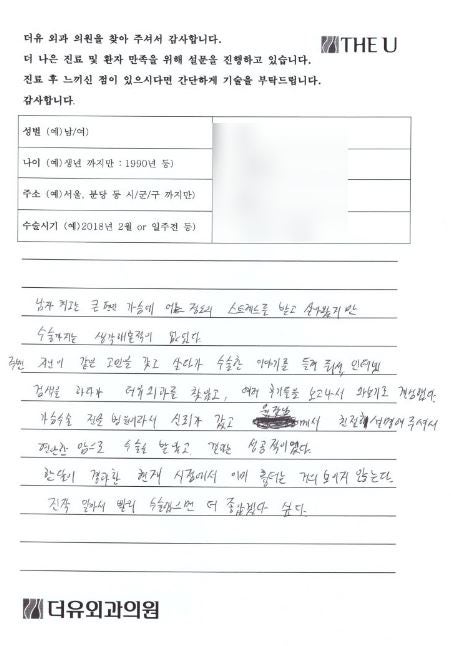 더유 외과 의원을 찾아 주셔서 감사합니다.
THE U
더 나은 진료 및 환자 만족을 위해 설문을 진행하고 있습니다.
진료 후 느끼신 점이 있으시다면 간단하게 기술을 부탁드립니다.
감사합니다.
성별 (예)남/여)
나이 (예)생년 까지만 : 1990년 등)
주소 (예)서울, 분당 등 시/군/구 까지만)
수술시기 (예)2018년 2월 or 일주전 등)
남자 치고는 큰 편인 가슴에 어느 정도의 스트레스를 받고 살아왔지만
수술까지는 생각해본적이 없었다.
주변 지인이 같은 고민을 갖고 살다가 수술한 이야기를 들려 줘서, 인터넷
검색을 하다가 더유외과를 찾았고, 여러 후기들을 보고나서 와보기로 결심했다.
가슴수술 전문 병원이라서 신뢰가 갔고 원장님께서 친절히 설명해 주셔서
편안한 맘으로 수술을 받았고 결과는 성공적이었다.
한달이 경과한 현재 시점에서 이미 흉터는 거의 보이지 않는다.
진작 알아서 빨리 수술했으면 더 좋았겠다 싶다.
더유외과의원